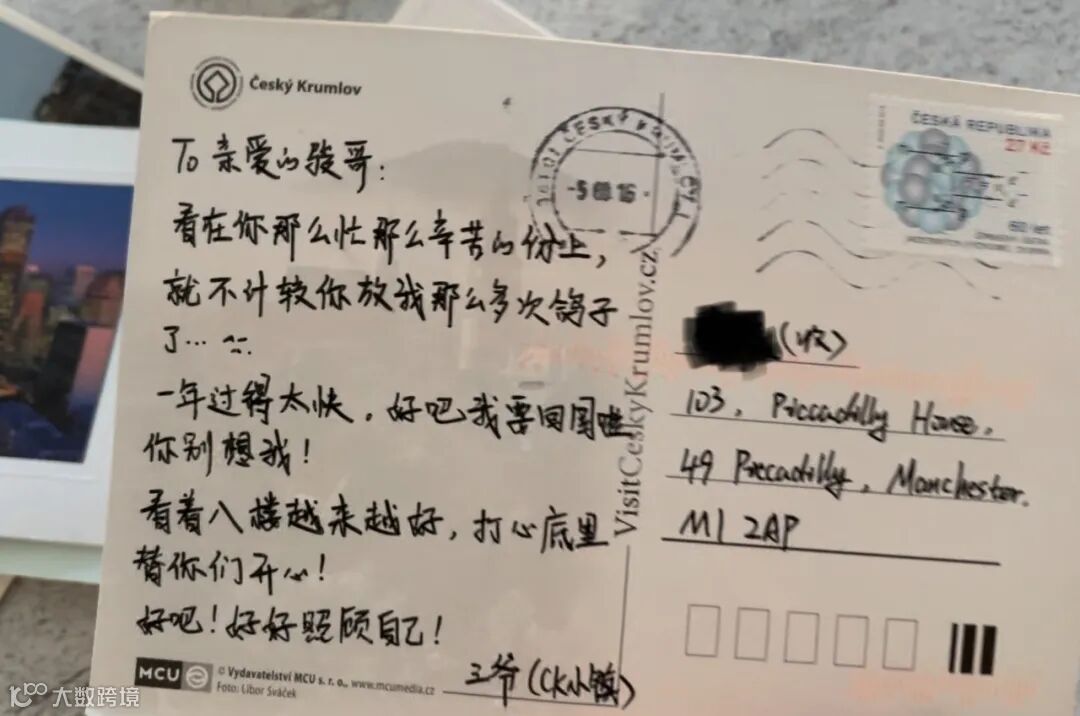 Český Krumlov
To 亲爱的骏哥:
看在你那么忙那么辛苦的份上,
就不计较你放我那么多次鸽子
了...
一年过得太快,好吧我要回国啦
你别想我!
看着八楼越来越好,打心底里
替你们开心!
好吧!好好照顾自己!
王爷(CK小镇)
MCU
© Vydavatelství MCU s. r. o., www.mcumedia.cz
Foto: Libor Sváček
VisitCeskyKrumlov.cz
ČESKÝ KRUMLOV 1
ČESKÁ REPUBLIKA
27 Kč
60 let
(收)
103, Piccadilly House,
49 Piccadilly, Manchester.
M1 2AP
大数跨境